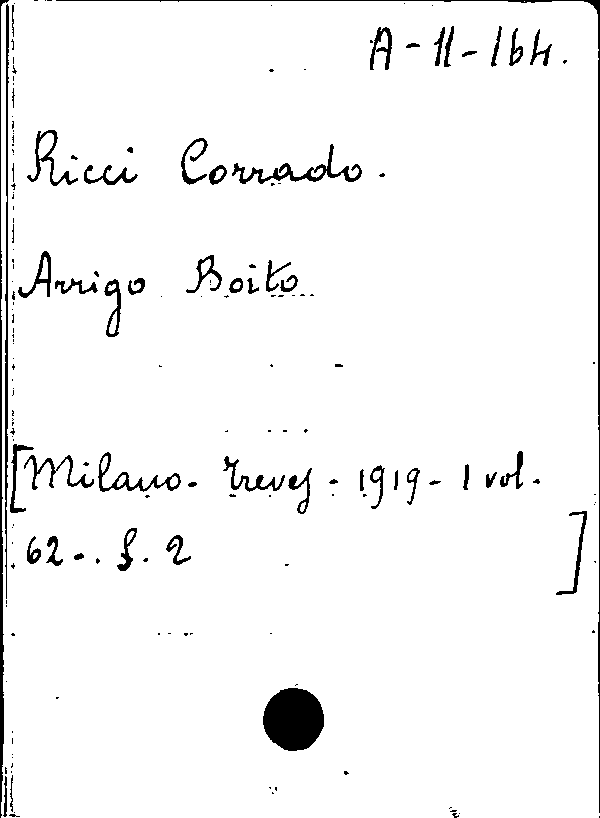 A-11-164.
Ricci Corrado.
Arrigo Boito
[Milano. Treves - 1919 - 1 vol.
62-. f. 2 ]